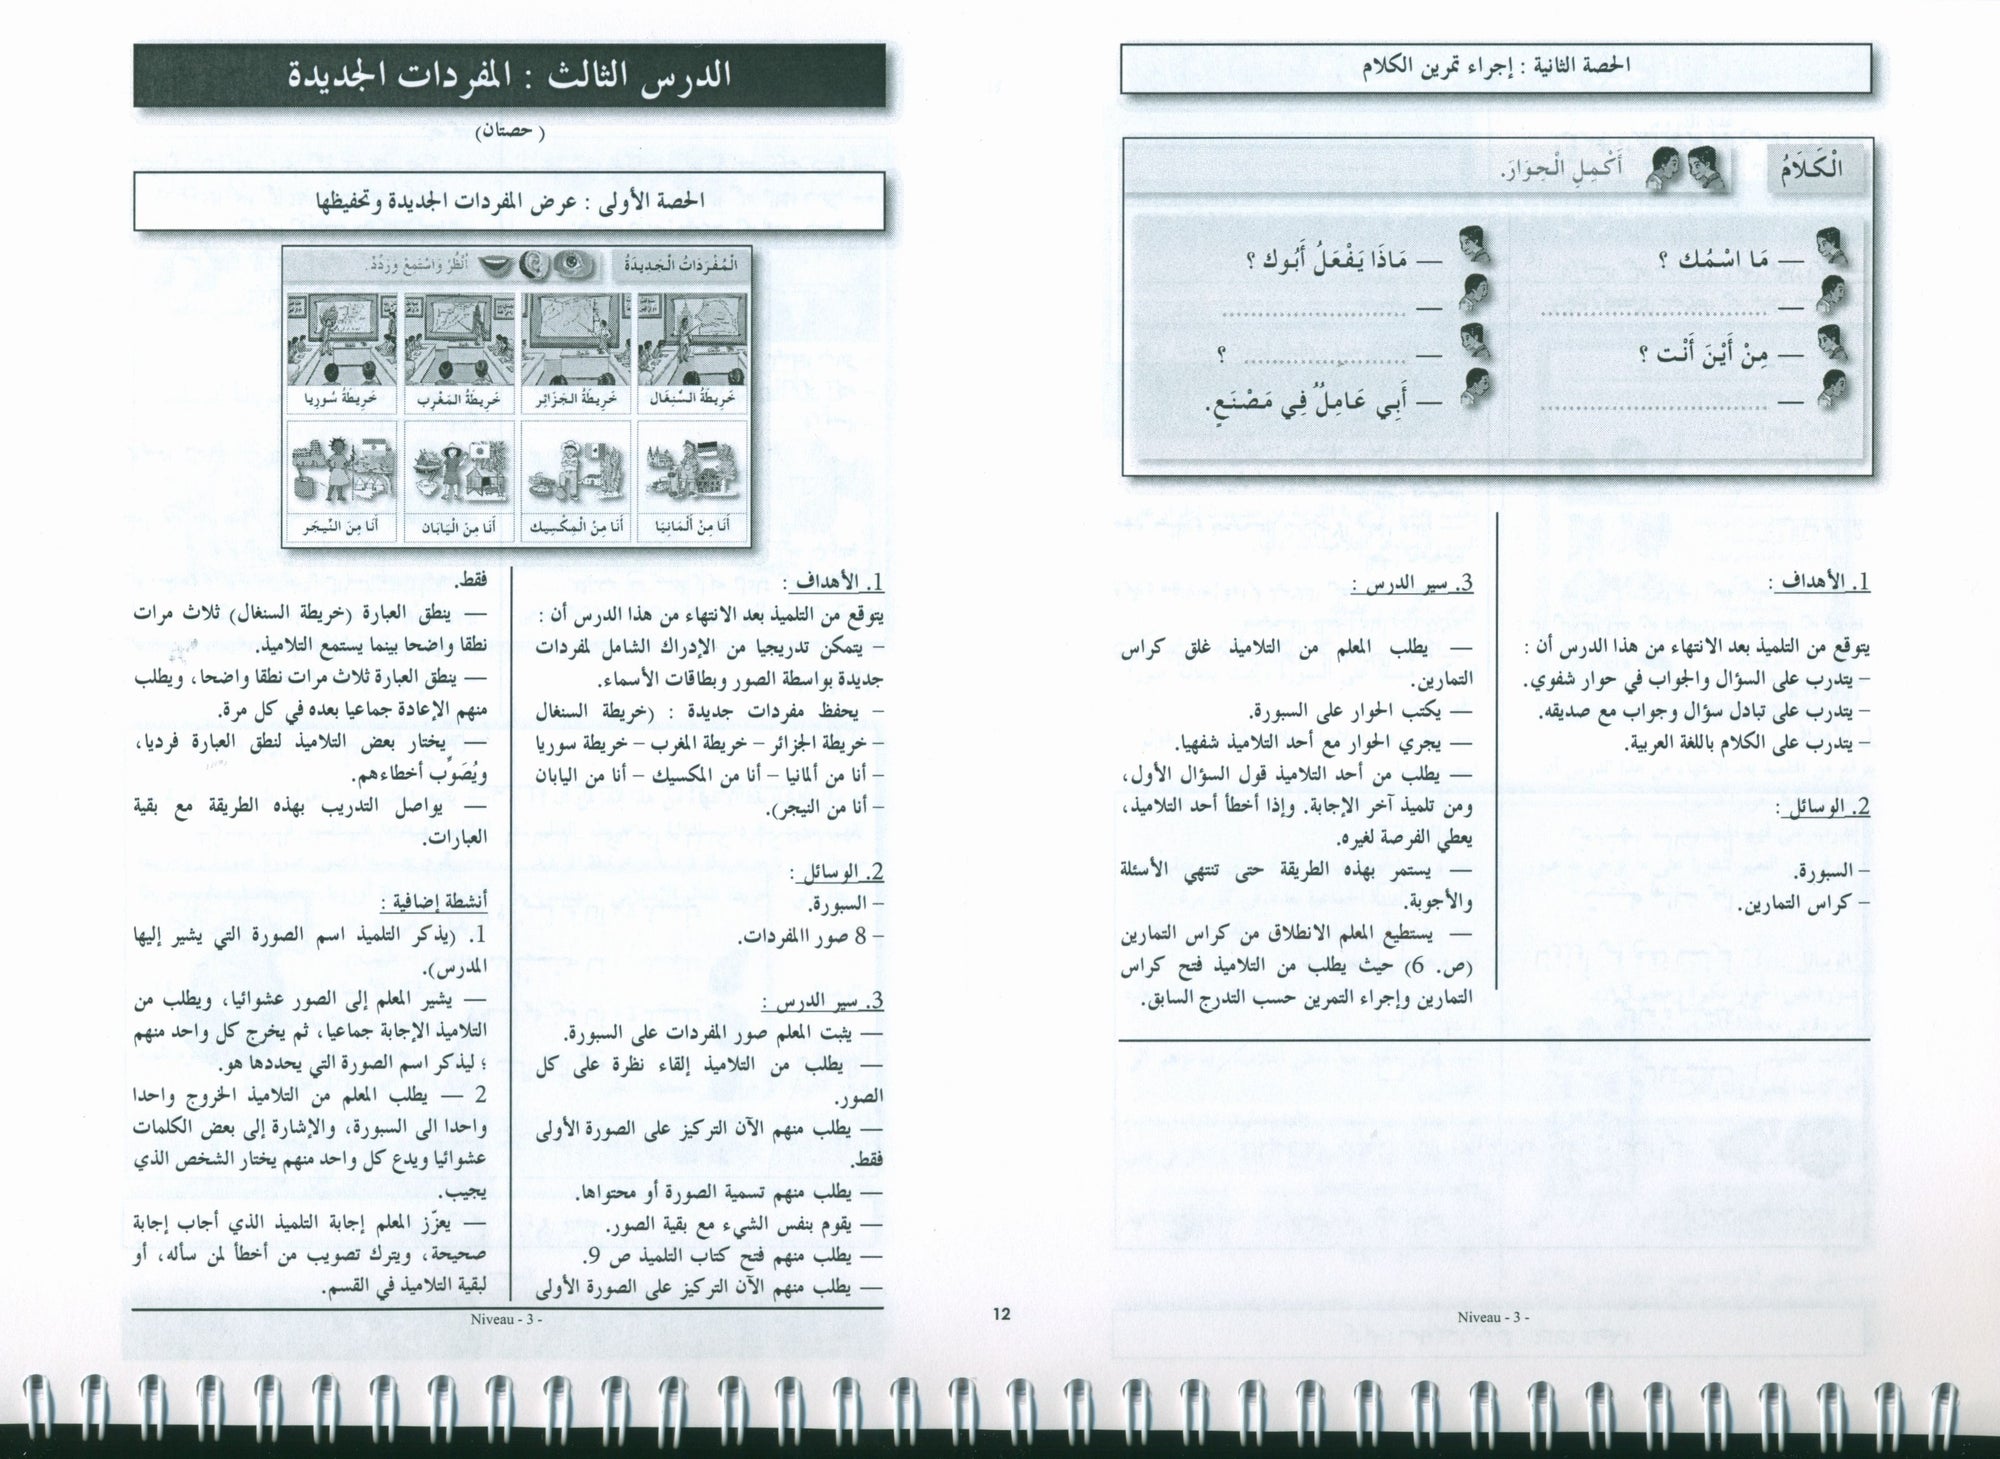 الحصة الثانية : إجراء تمرين الكلام
الْكَلَامُ
أَكْمِلِ الْحِوَارَ.
— مَا اسْمُك ؟
— ........................
— مِنْ أَيْنَ أَنْت ؟
— ........................
— مَاذَا يَفْعَلُ أَبُوك ؟
— ........................
— .................... ؟
— أَبِي عَامِلٌ فِي مَصْنَعٍ.
1. الأهداف :
يتوقع من التلميذ بعد الانتهاء من هذا الدرس أن :
– يتدرب على السؤال والجواب في حوار شفوي.
– يتدرب على تبادل سؤال وجواب مع صديقه.
– يتدرب على الكلام باللغة العربية.
2. الوسائل :
– السبورة.
– كراس التمارين.
3. سير الدرس :
— يطلب المعلم من التلاميذ غلق كراس
التمارين.
— يكتب الحوار على السبورة.
— يجري الحوار مع أحد التلاميذ شفهيا.
— يطلب من أحد التلاميذ قول السؤال الأول،
ومن تلميذ آخر الإجابة. وإذا أخطأ أحد التلاميذ،
يعطي الفرصة لغيره.
— يستمر بهذه الطريقة حتى تنتهي الأسئلة
والأجوبة.
— يستطيع المعلم الانطلاق من كراس التمارين
(ص. 6) حيث يطلب من التلاميذ فتح كراس
التمارين وإجراء التمرين حسب التدرج السابق.
Niveau - 3 -
12
الدرس الثالث : المفردات الجديدة
( حصتان)
الحصة الأولى : عرض المفردات الجديدة وتحفيظها
الْمُفْرَدَاتُ الْجَدِيدَةُ
اُنْظُرْ وَاسْتَمِعْ وَرَدِّدْ.
خَرِيطَةُ السِّنِغَال
خَرِيطَةُ الجَزَائِر
خَرِيطَةُ المَغْرِب
خَرِيطَةُ سُورِيا
أَنَا مِنْ أَلْمَانِيَا
أَنَا مِنْ الْمِكْسِيك
أَنَا مِنَ الْيَابَان
أَنَا مِنَ النِّيجَر
1. الأهداف :
يتوقع من التلميذ بعد الانتهاء من هذا الدرس أن :
– يتمكن تدريجيا من الإدراك الشامل لمفردات
جديدة بواسطة الصور وبطاقات الأسماء.
– يحفظ مفردات جديدة : (خريطة السنغال
– خريطة الجزائر – خريطة المغرب – خريطة سوريا
– أنا من ألمانيا – أنا من المكسيك – أنا من اليابان
– أنا من النيجر).
2. الوسائل :
– السبورة.
– 8 صور االمفردات.
3. سير الدرس :
— يثبت المعلم صور المفردات على السبورة.
— يطلب من التلاميذ إلقاء نظرة على كل
الصور.
— يطلب منهم الآن التركيز على الصورة الأولى
فقط.
— يطلب منهم تسمية الصورة أو محتواها.
— يقوم بنفس الشيء مع بقية الصور.
— يطلب منهم فتح كتاب التلميذ ص 9.
— يطلب منهم الآن التركيز على الصورة الأولى
فقط.
— ينطق العبارة (خريطة السنغال) ثلاث مرات
نطقا واضحا بينما يستمع التلاميذ.
— ينطق العبارة ثلاث مرات نطقا واضحا، ويطلب
منهم الإعادة جماعيا بعده في كل مرة.
— يختار بعض التلاميذ لنطق العبارة فرديا،
ويُصَوِّب أخطاءهم.
— يواصل التدريب بهذه الطريقة مع بقية
العبارات.
أنشطة إضافية :
1. (يذكر التلميذ اسم الصورة التي يشير إليها
المدرس).
— يشير المعلم إلى الصور عشوائيا، ويطلب من
التلاميذ الإجابة جماعيا، ثم يخرج كل واحد منهم
؛ ليذكر اسم الصورة التي يحددها هو.
2 — يطلب المعلم من التلاميذ الخروج واحدا
واحدا الى السبورة، والإشارة إلى بعض الكلمات
عشوائيا ويدع كل واحد منهم يختار الشخص الذي
يجيب.
— يعزّز المعلم إجابة التلميذ الذي أجاب إجابة
صحيحة، ويترك تصويب من أخطأ لمن سأله، أو
لبقية التلاميذ في القسم.
Niveau - 3 -